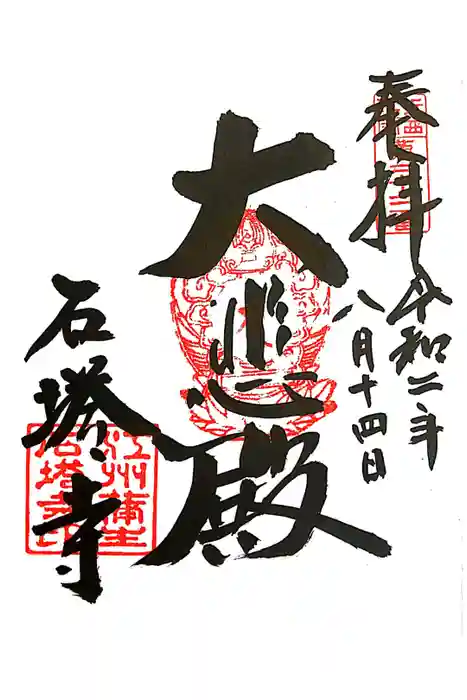 奉拝
令和二年
八月十四日
大悲殿
石塔寺
江州蒲生
石塔寺印